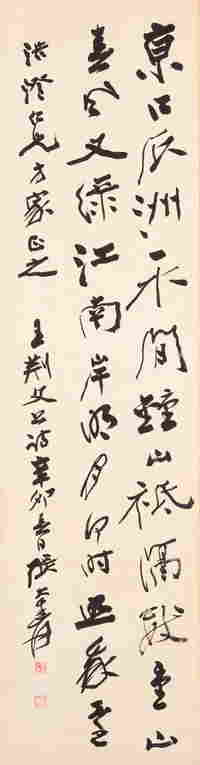 京口瓜洲一水間鍾山祇隔數重山
春風又綠江南岸明月何時照我還
洪澄仁兄方家正之 王荆公詩辛卯春日張大千爰